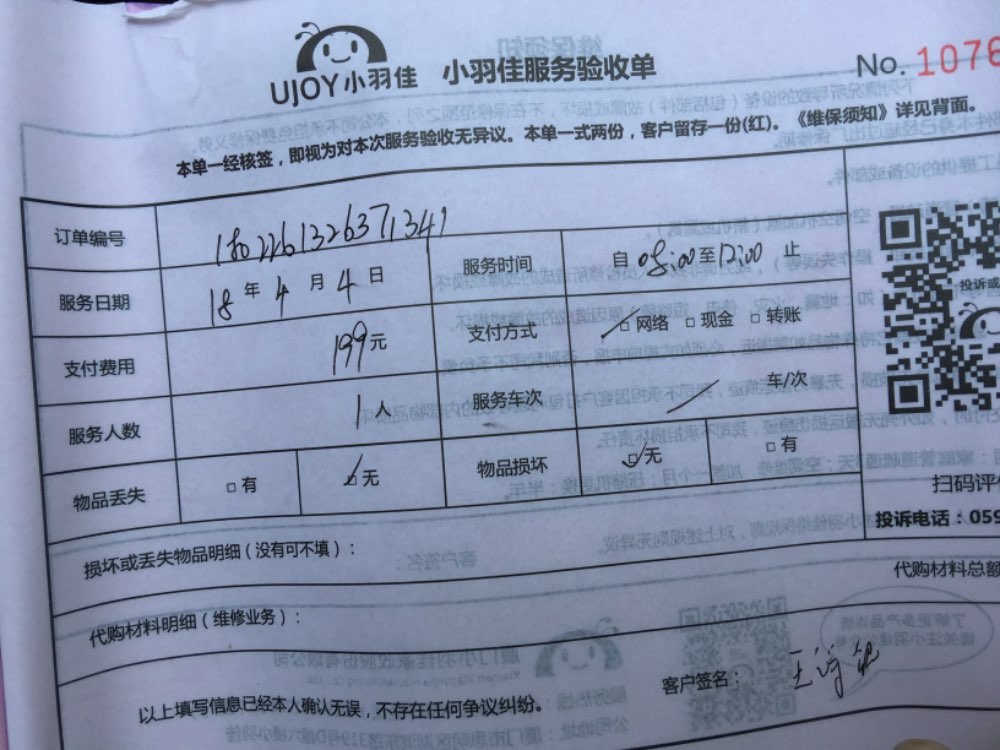 UJOY小羽佳 小羽佳服务验收单 No. 1076
本单一经核签，即视为对本次服务验收无异议。本单一式两份，客户留存一份(红)。《维保须知》详见背面。
订单编号 1802261326371341
服务日期 18年4月4日 服务时间 自08:00至12:00止
支付费用 199元 支付方式 □网络 □现金 □转账
服务人数 1人 服务车次 车/次
物品丢失 □有 无 物品损坏 □无 □有
投诉或
扫码评
投诉电话：059
损坏或丢失物品明细（没有可不填）：
代购材料总额
代购材料明细（维修业务）：
以上填写信息已经本人确认无误，不存在任何争议纠纷。 客户签名：